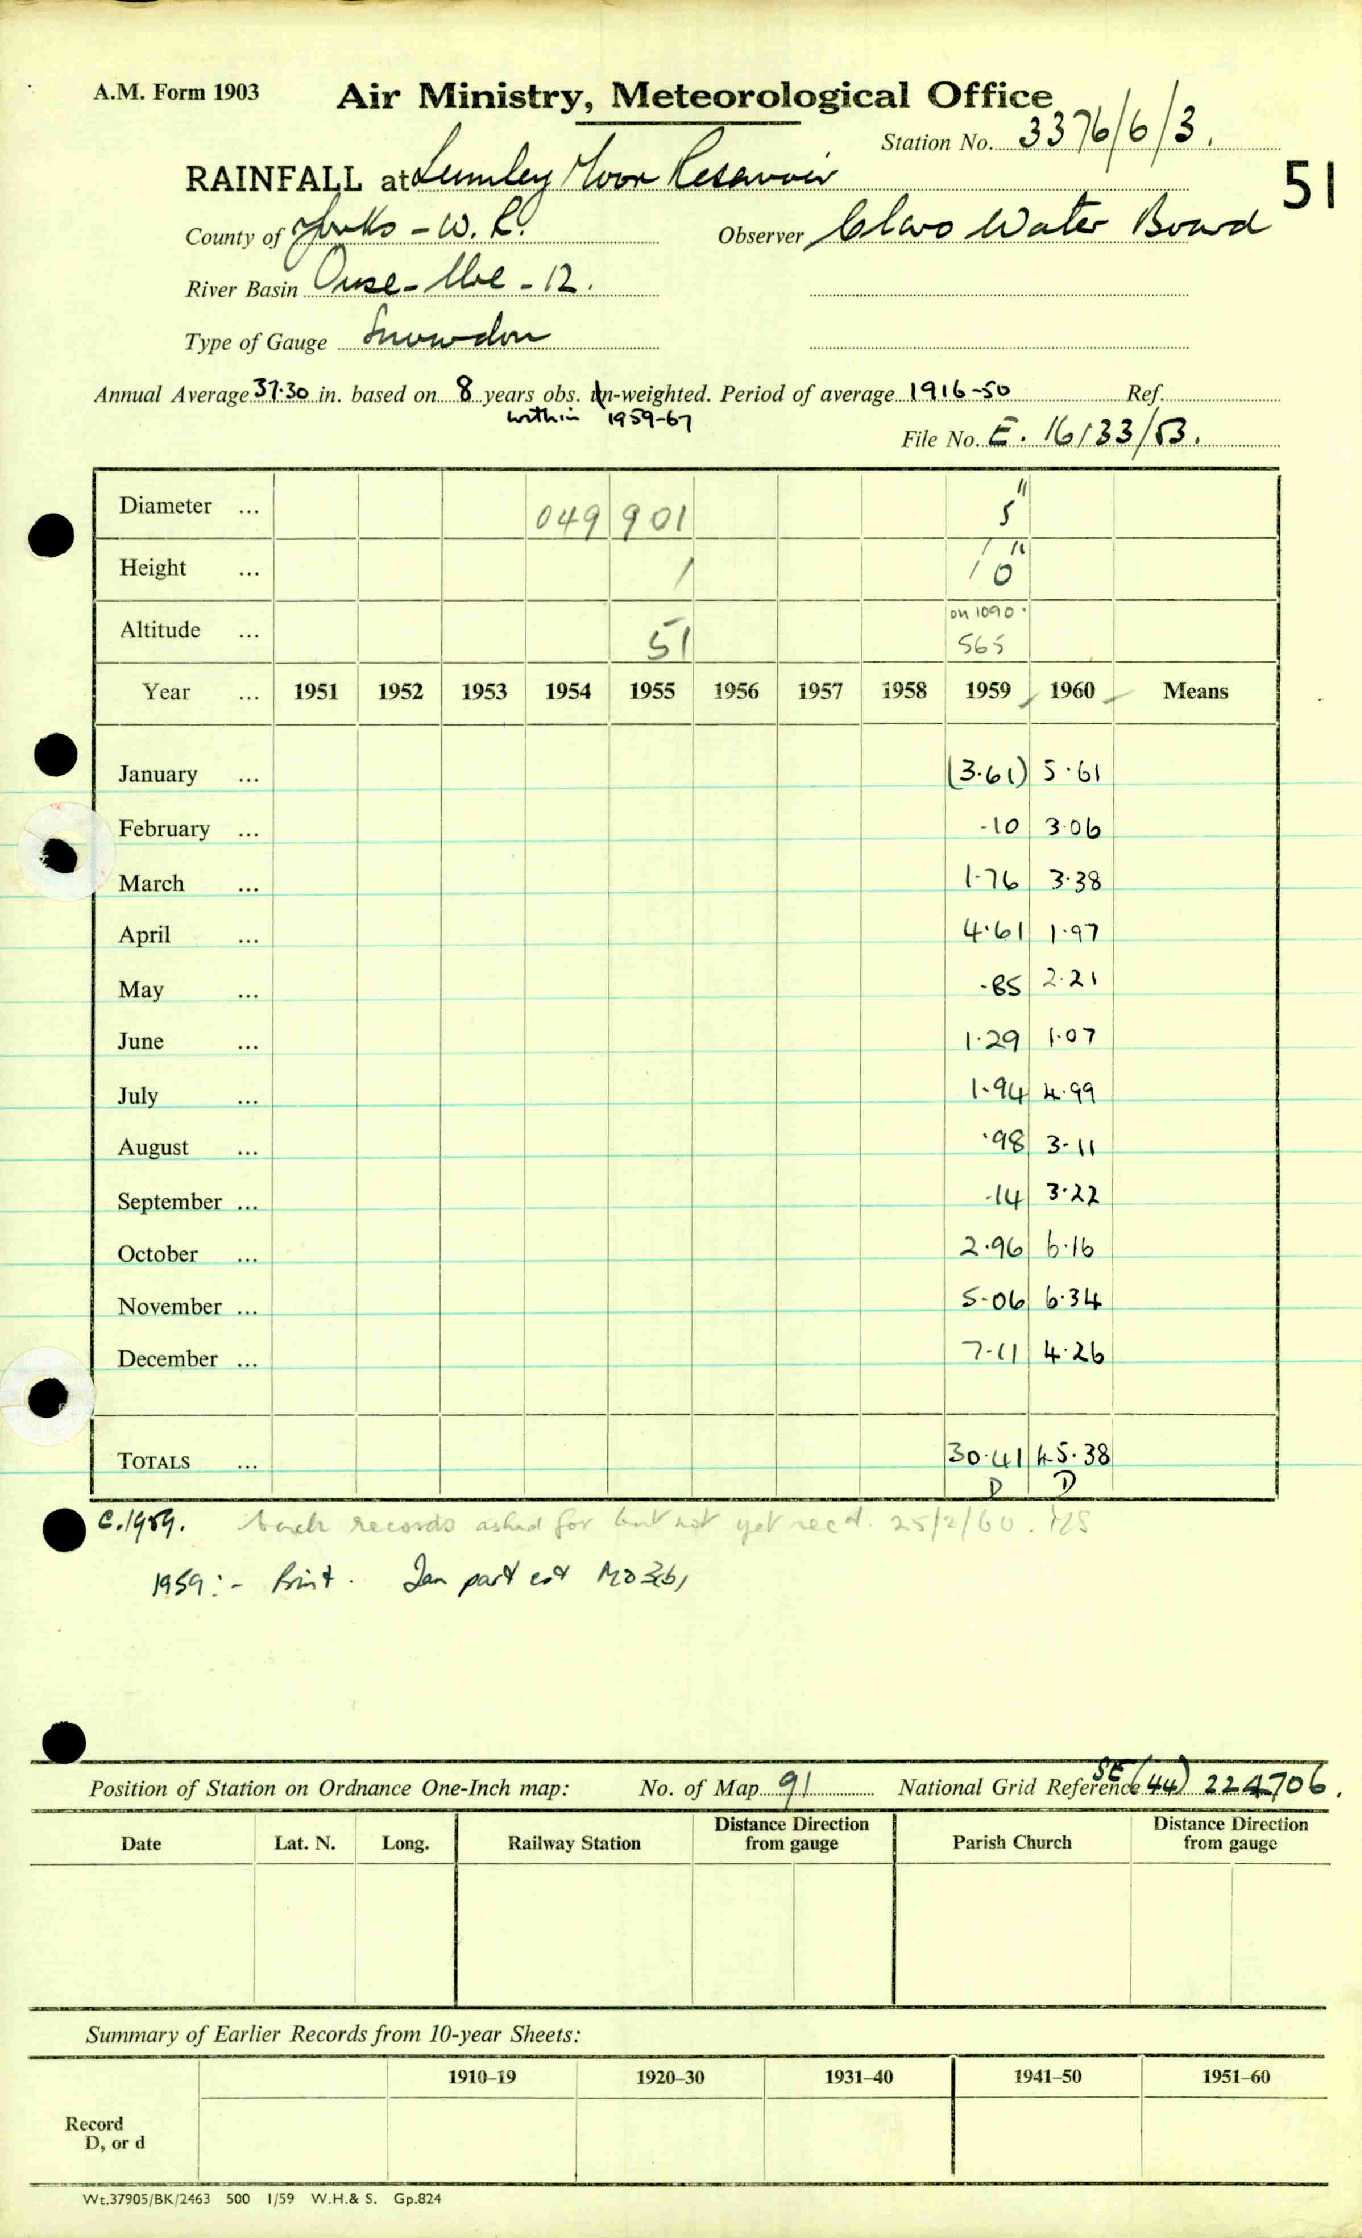 A.M. Form 1903 Air Ministry, Meteorological Office
Station No. 3376/6/3.
51
RAINFALL at Lumley Moor Reservoir
County of Yorks - W. R. Observer Claro Water Board
River Basin Ouse - Ure - 12.
Type of Gauge Snowdon
Annual Average 37.30 in. based on 8 years obs. un-weighted. Period of average 1916-50 Ref.
within 1959-67
File No. E. 16133/53.
Diameter ... 049 901 5"
Height ... 1 1' 0"
Altitude ... 51 on 1090. 565
Year ... 1951 1952 1953 1954 1955 1956 1957 1958 1959 1960 Means
January ... (3.61) 5.61
February ... .10 3.06
March ... 1.76 3.38
April ... 4.61 1.97
May ... .85 2.21
June ... 1.29 1.07
July ... 1.94 4.99
August ... .98 3.11
September ... .14 3.22
October ... 2.96 6.16
November ... 5.06 6.34
December ... 7.11 4.26
TOTALS ... 30.41 45.38
D D
C.1959. back records asked for but not yet rec'd. 25/2/60.
1959:- Print. Jan part est
Position of Station on Ordnance One-Inch map: No. of Map 91 National Grid Reference SE (44) 224706.
Date Lat. N. Long. Railway Station Distance Direction from gauge Parish Church Distance Direction from gauge
Summary of Earlier Records from 10-year Sheets:
1910-19 1920-30 1931-40 1941-50 1951-60
Record
D, or d
Wt.37905/BK/2463 500 1/59 W.H.& S. Gp.824